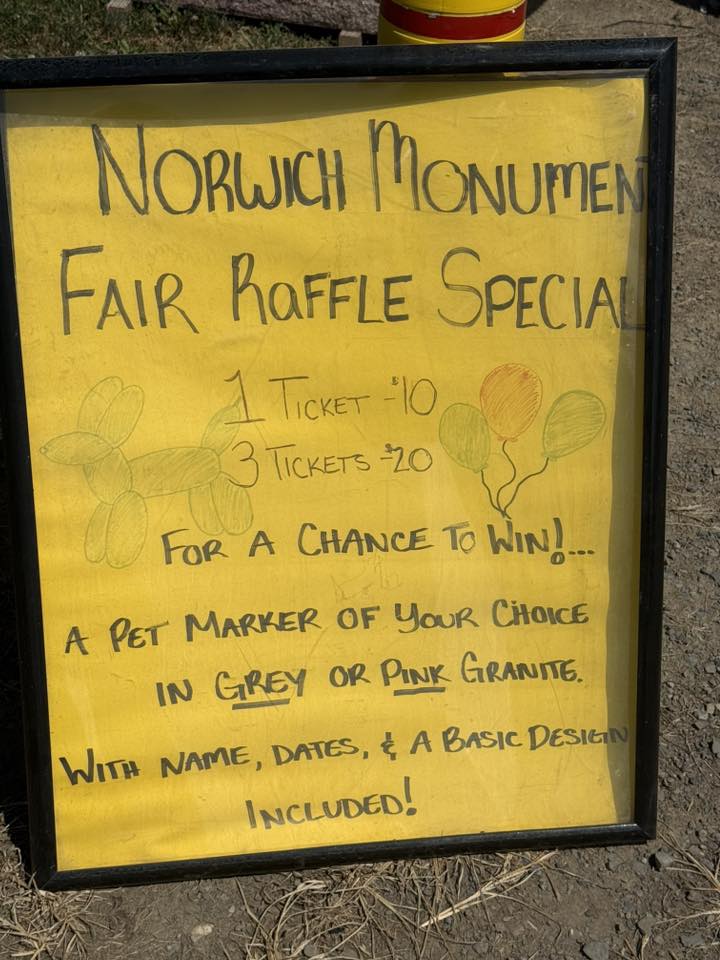 NORWICH MONUMEN
FAIR RAFFLE SPECIAL
1 TICKET -$10
3 TICKETS -$20
FOR A CHANCE TO WIN!...
A PET MARKER OF YOUR CHOICE
IN GREY OR PINK GRANITE.
WITH NAME, DATES, & A BASIC DESIGN
INCLUDED!